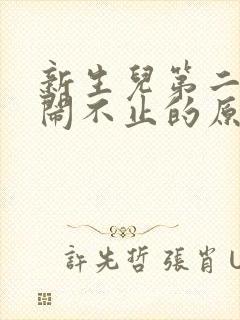 新生兒第二
鬧不止的原
許先哲 張肖 U